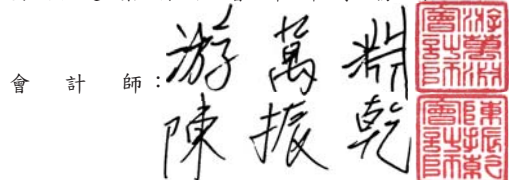 會計師：游萬淵
陳振乾
游萬淵會計師
陳振乾會計師